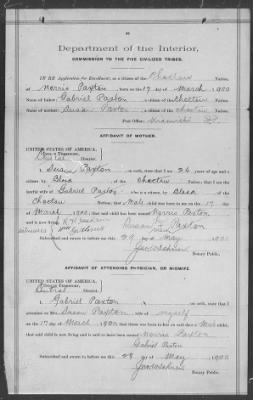 Department of the Interior,
COMMISSION TO THE FIVE CIVILIZED TRIBES.
IN RE Application for Enrollment, as a citizen of the Choctaw Nation,
of Norris Paxton, born on the 17 day of March, 1900
Name of father: Gabriel Paxton a citizen of the Choctaw Nation.
Name of mother: Susan Paxton a citizen of the Choctaw Nation.
Post Office:
AFFIDAVIT OF MOTHER.
UNITED STATES OF AMERICA,
INDIAN TERRITORY,
Central District.
I, Susan Paxton, on oath state that I am 26 years of age and a
citizen by Blood, of the Choctaw Nation; that I am the
lawful wife of Gabriel Paxton, who is a citizen, by Blood of the
Choctaw Nation; that a Male child was born to me on the 17 day
of March, 1900; that said child has been named Norris Paxton,
and is now living.
Susan Paxton
Subscribed and sworn to before me this 29 day of May, 1900
Notary Public.
AFFIDAVIT OF ATTENDING PHYSICIAN, OR MIDWIFE.
UNITED STATES OF AMERICA,
INDIAN TERRITORY,
Central District.
I, Gabriel Paxton, on oath, state that I
attended on Mrs. Susan Paxton, wife of myself
on the 17 day of March, 1900; that there was born to her on said date a Male child;
that said child is now living and is said to have been named Norris Paxton
Gabriel Paxton
Subscribed and sworn to before me this 28 day of May, 1900
Notary Public.